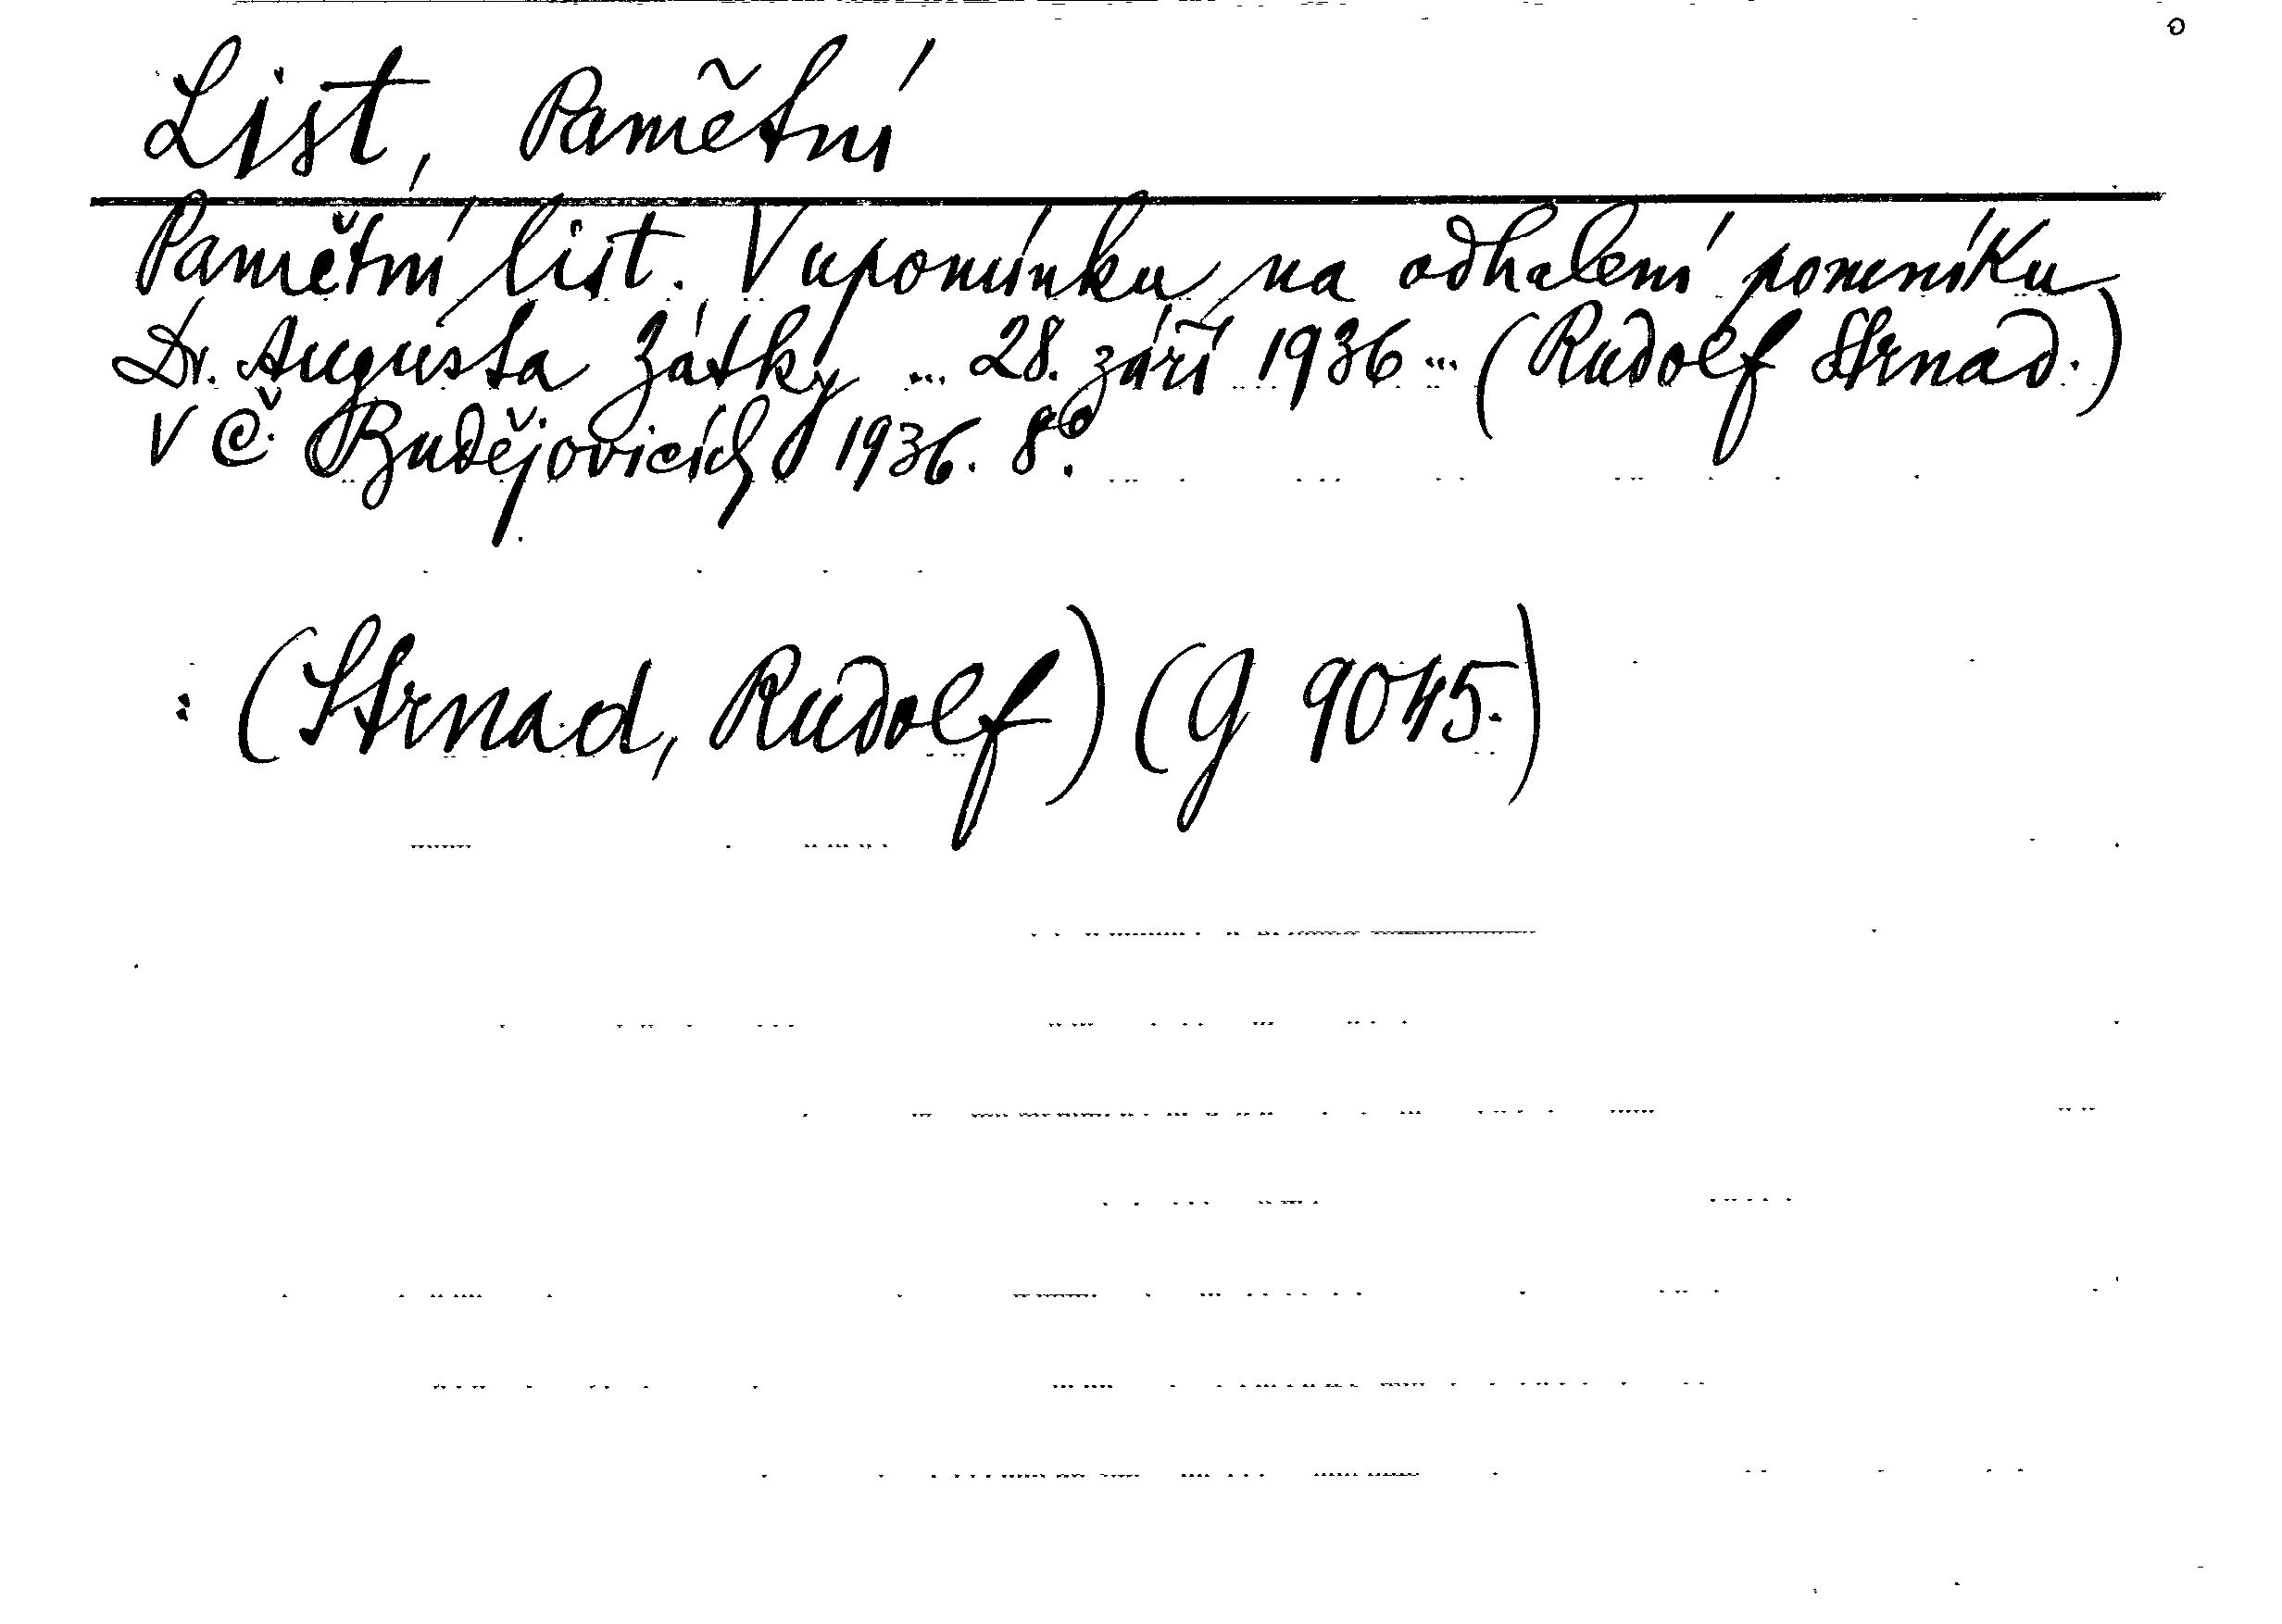 List, Pamětní
Pamětní list. V upomínku na odhalení pomníku
Dr. Augusta Zátky ... 28. září 1936 ... (Rudolf Strnad.)
V Č. Budějovicích 1936. 8°.
: (Strnad, Rudolf) (G 9045.)